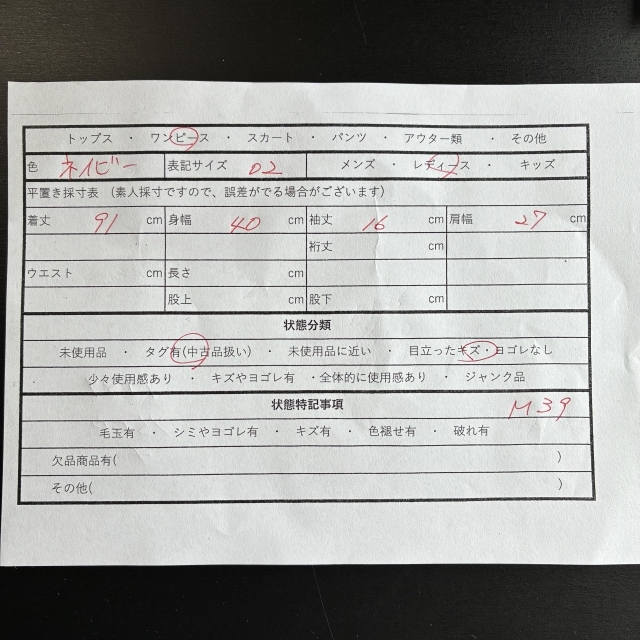 トップス ・ ワンピース ・ スカート ・ パンツ ・ アウター類 ・ その他
色 ネイビー 表記サイズ 02 メンズ ・ レディース ・ キッズ
平置き採寸表 (素人採寸ですので、誤差がでる場合がございます)
着丈 91 cm 身幅 40 cm 袖丈 16 cm 肩幅 27 cm
裄丈 cm
ウエスト cm 長さ cm
股上 cm 股下 cm
状態分類
未使用品 ・ タグ有(中古品扱い) ・ 未使用品に近い ・ 目立ったキズ・ヨゴレなし
少々使用感あり ・ キズやヨゴレ有 ・全体的に使用感あり ・ ジャンク品
状態特記事項 M39
毛玉有 ・ シミやヨゴレ有 ・ キズ有 ・ 色褪せ有 ・ 破れ有
欠品商品有( )
その他( )